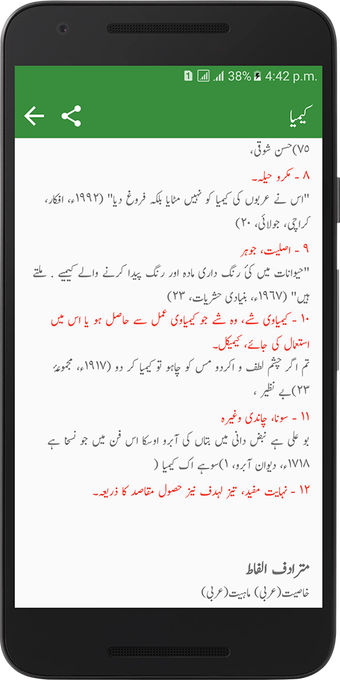 38% 4:42 p.m.
کیمیا
۷۵)حسن شوقی،
۸ - مکر و حیلہ۔
"اس نے عربوں کی کیمیا کو نہیں مٹایا بلکہ فروغ دیا" (۱۹۹۲ء، افکار،
کراچی، جولائی، ۲۰)
۹ - اصلیت، جوہر
"حیوانات میں کئ رنگ داری مادہ اور رنگ پیدا کرنے والے کیمیے . ملتے
ہیں" (۱۹۶۷ء، بنیادی حشریات، ۲۳)
۱۰ - کیمیاوی شے، وہ شے جو کیمیاوی عمل سے حاصل ہو یا اس میں
استعمال کی جائے، کیمیکل۔
تم اگر چشم لطف و اکردو مس کو چاہو تو کیمیا کر دو (۱۹۱۷ء، مجموعۂ
۲۳)بے نظیر ،
۱۱ - سونا، چاندی وغیرہ
بو علی ہے نبض دانی میں بتاں کی آبرو اوسکا اس فن میں جو نسخا ہے
۱۷۱۸ء، دیوان آبرو، ۱)سوہے اک کیمیا (
۱۲ - نہایت مفید، تیز لہدف نیز حصول مقاصد کا ذریعہ۔
مترادف الفاظ
خاصیت(عربی) ماہیت(عربی)